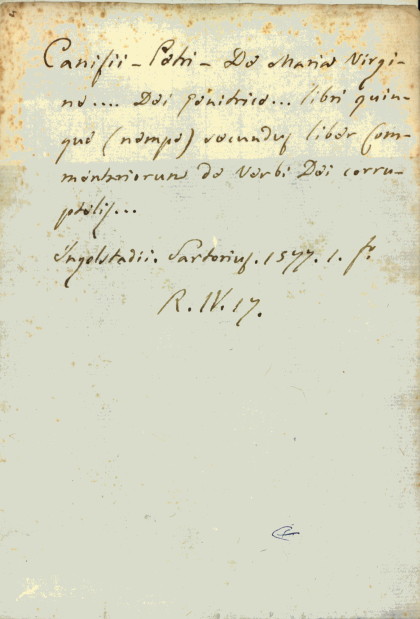 Canisii - Petri - De Maria Virgi-
ne.... Dei Genitrice... libri quin-
que (nempe) secundus liber Com-
mentariorum de Verbi Dei corru-
ptelis...
Ingolstadii. Sartorius. 1577. 1. fo.
R. IV. 17.